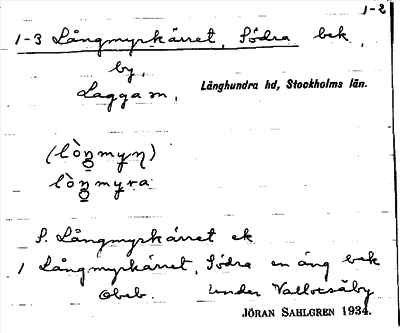 1-2
1-3 Långmyrkärret, Södra bek.
by,
Lagga sn,
Långhundra hd, Stockholms län.
(lòn̥myn)
lòn̥myra
S. Långmyrkärret ek
1 Långmyrkärret, Södra en äng bek
Obeb. under Vallotsåby
JÖRAN SAHLGREN 1934.